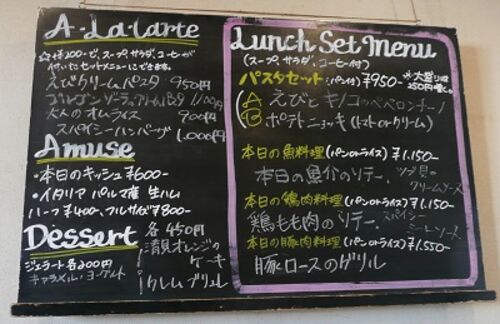 A・La・Carte
☆+¥200-で、スープ、サラダ、コーヒーが
付いたセットメニューにできます。
えびクリームパスタ 950円
ゴルゴンゾーラクリームパスタ 1,100円
大人のオムライス 900円
スパイシーハンバーグ 1,000円
Amuse
・本日のキッシュ ¥600-
・イタリア パルマ産 生ハム
ハーフ ¥400-、フルサイズ ¥800-
Dessert
各450円
清見オレンジの
ケーキ
クレムブリュレ
ジェラート各200円
キャラメル・ヨーグルト
Lunch Set Menu
(スープ、サラダ、コーヒー付)
パスタセット (パン付) ¥950-
※大盛りは
Ⓐ えびとキノコのペペロンチーノ
Ⓑ ポテトニョッキ (トマト or クリーム)
本日の魚料理 (パンorライス) ¥1,150-
本日の魚介のソテー
クリームソース
本日の鶏肉料理 (パンorライス) ¥1,150-
鶏もも肉のソテー スパイシー
ソース
本日の豚肉料理 (パンorライス) ¥1,550-
豚ロースのグリル